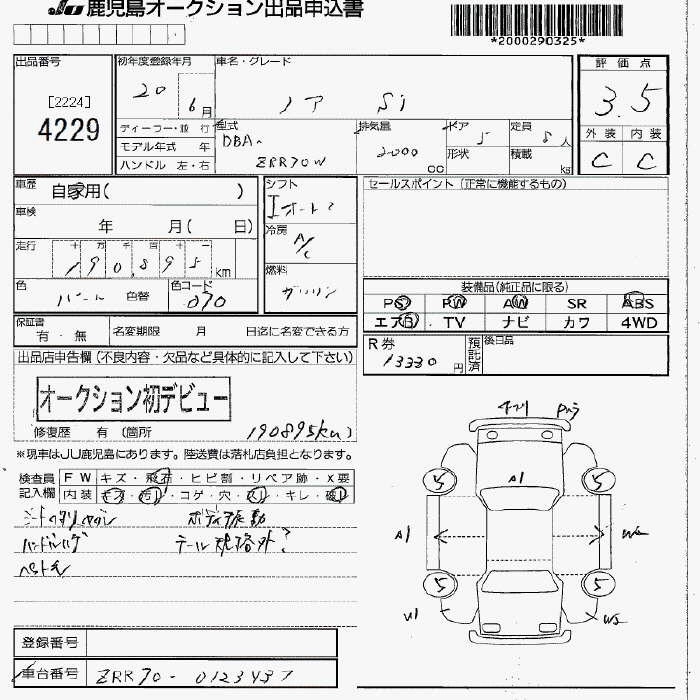 JU 鹿児島オークション出品申込書
*2000290325*
出品番号
[2224]
4229
初年度登録年月
20 6月
車名・グレード
ノア Si
評価点
3.5
外装 内装
C C
ディーラー・並行
モデル年式 年
ハンドル 左・右
型式
DBA-
ZRR70W
排気量
2000 cc
ドア 5
形状
定員 8人
積載 kg
車歴 自家用( )
車検 年 月( 日)
走行 十 万 千 百 十 一
190,895 km
色 パール 色替
色コード 070
シフト
オート
冷房
A/C
燃料
ガソリン
セールスポイント(正常に機能するもの)
装備品(純正品に限る)
PS PW AW SR ABS
エアB TV ナビ カワ 4WD
保証書 有・無
名変期限 月 日迄に名変できる方
R券 13330円
預託済
後日品
出品店申告欄(不良内容・欠品など具体的に記入して下さい)
オークション初デビュー
修復歴 有(箇所 190895km)
※現車はJU鹿児島にあります。陸送費は落札店負担となります。
検査員記入欄
FW キズ・飛石・ヒビ割・リペア跡・X要
内装 キズ・汚れ・コゲ・穴・スレ・キレ・破れ
ボディ振動
ハンドルハゲ テール規格外?
A1
A1
U1
W5
5 5 5 5
登録番号
車台番号 ZRR70-0123437